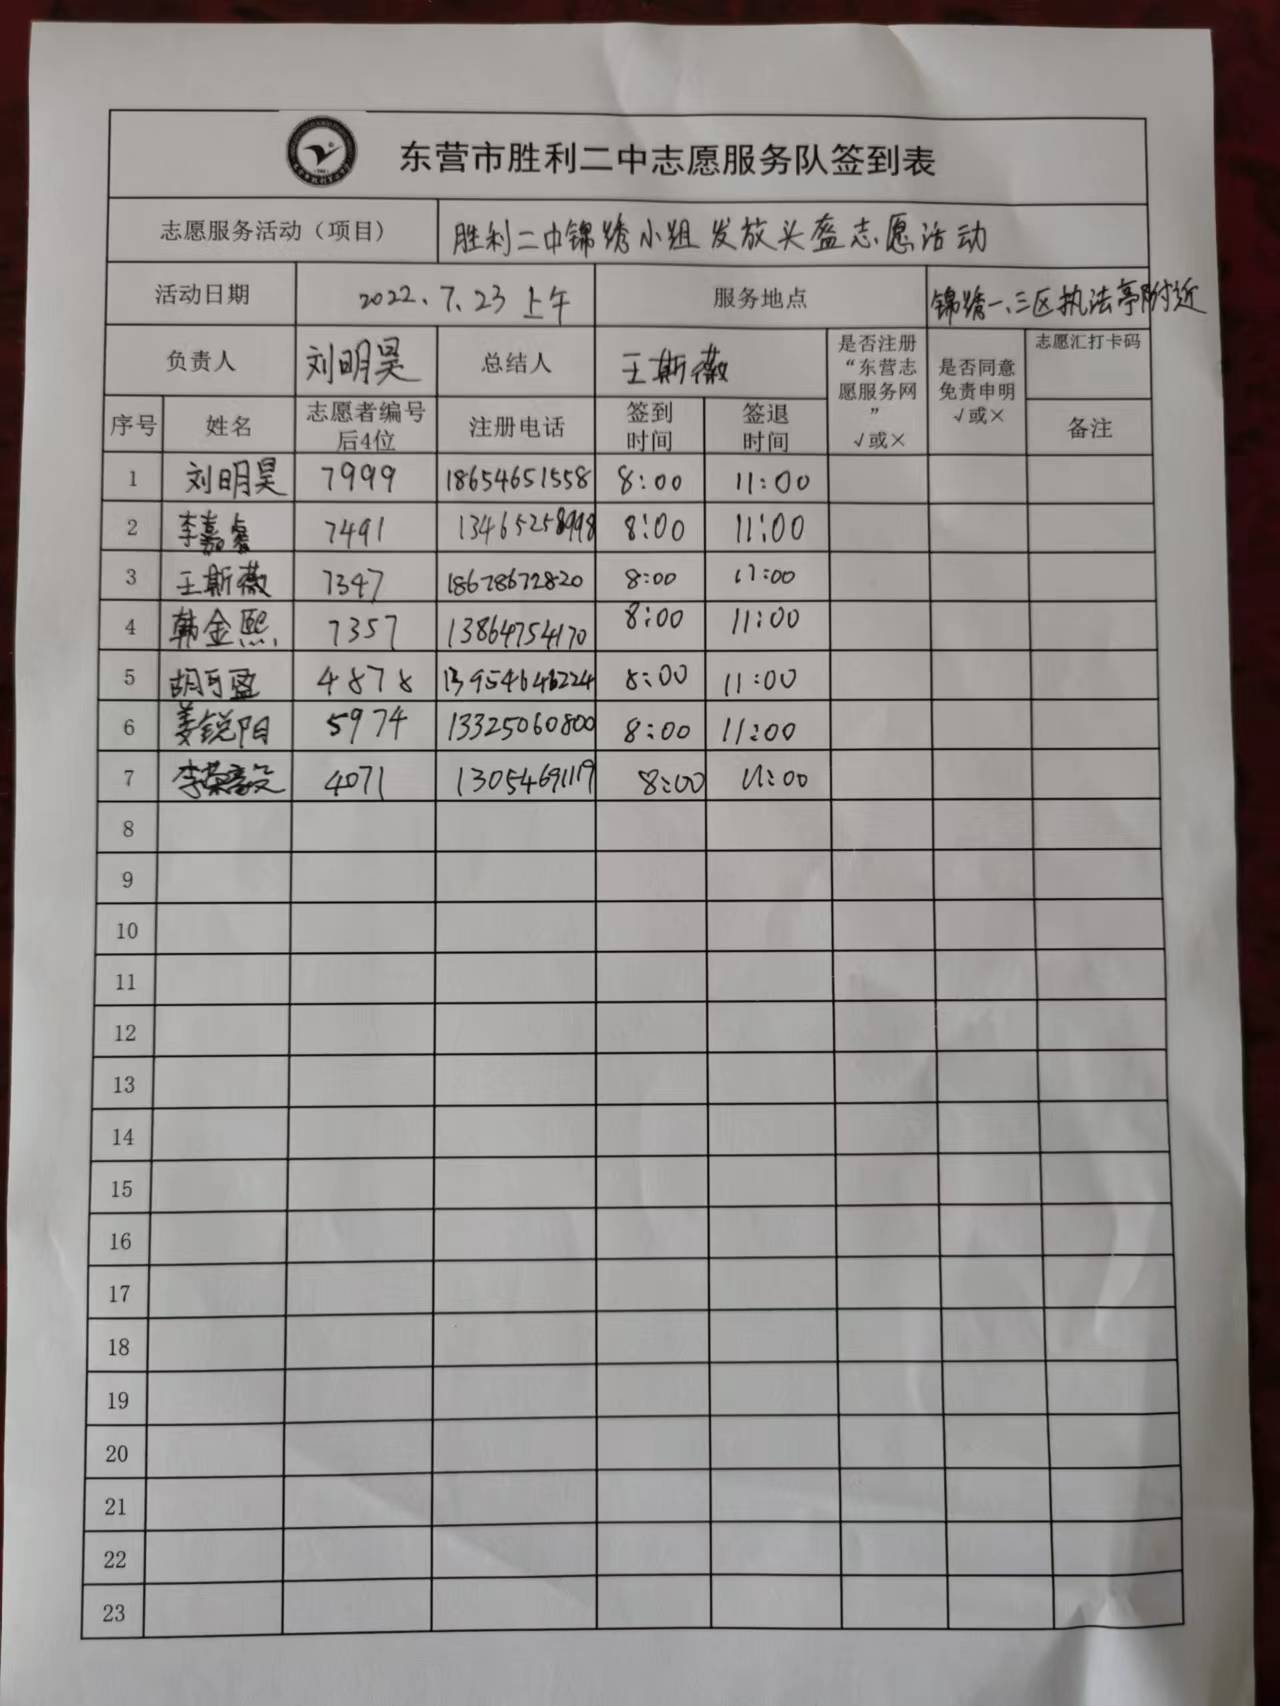 东营市胜利二中志愿服务队签到表
志愿服务活动（项目） 胜利二中锦绣小组发放头盔志愿活动
活动日期 2022.7.23上午 服务地点 锦绣一、三区执法亭附近
负责人 刘明昊 总结人 王斯薇 是否注册“东营志愿服务网”√或× 是否同意免责申明√或× 志愿汇打卡码
序号 姓名 志愿者编号后4位 注册电话 签到时间 签退时间 备注
1 刘明昊 7999 18654651558 8:00 11:00
2 李嘉睿 7491 13465258998 8:00 11:00
3 王斯薇 7347 18678672820 8:00 11:00
4 韩金熙 7357 13864754170 8:00 11:00
5 胡可盈 4878 13954646224 8:00 11:00
6 姜锐阳 5974 13325060800 8:00 11:00
7 4071 13054691119 8:00 11:00
8
9
10
11
12
13
14
15
16
17
18
19
20
21
22
23